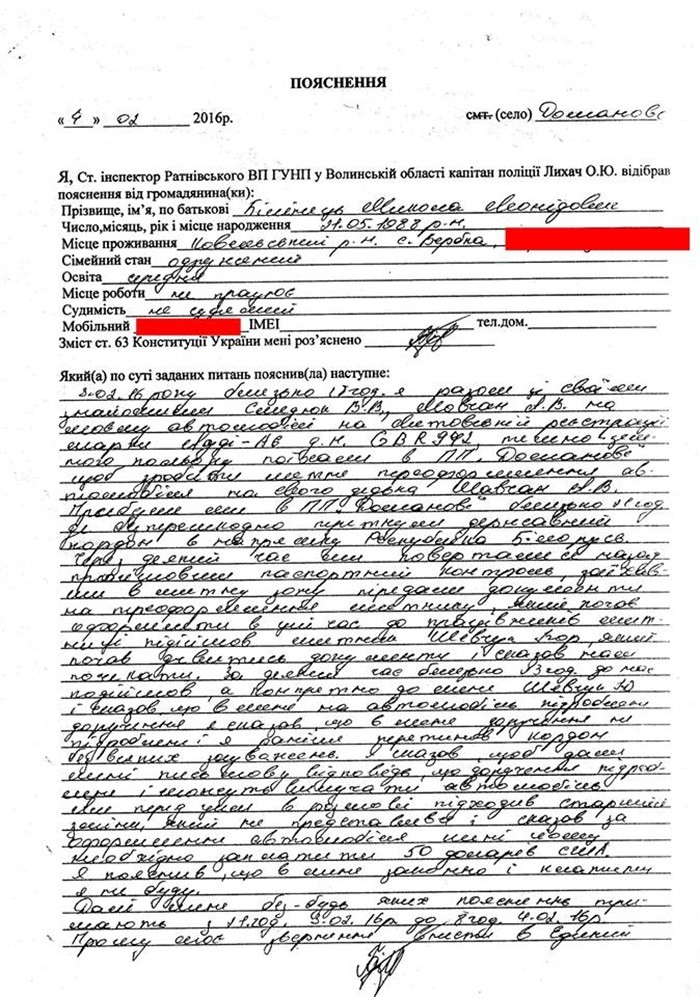 ПОЯСНЕННЯ
« 4 » 02 2016р. смт. (село) Доманове
Я, Ст. інспектор Ратнівського ВП ГУНП у Волинській області капітан поліції Лихач О.Ю. відібрав
пояснення від громадянина(ки):
Прізвище, ім’я, по батькові Микола Леонідович
Число,місяць, рік і місце народження 05.1988 р.н.
Місце проживання Ковельський р.н. с. Вербка,
Сімейний стан одружений
Освіта середня
Місце роботи не працює
Судимість не судимий
Мобільний ІМЕІ тел.дом.
Зміст ст. 63 Конституції України мені роз’яснено
Який(а) по суті заданих питань пояснив(ла) наступне:
3.02.16 року близько 17 год. я разом зі своїми
знайомими В.В, Мавчан А.В. на
автомобілі на литовській реєстрації
марки Ауді-А6 д.н. GBR 992,
поїхали в ПП. Доманове
щоб зробити митне переоформлення ав-
томобіля на свого дядька А.В.
Прибули ми в ПП Доманове близько год
де безперешкодно перетнули державний
кордон в напрямку Республіка Білорусь.
Через деякий час ми повертались назад
пройшовши паспортний контроль, заїхав-
ши в митну зону передали документи
на переоформлення митнику, який почав
оформляти в цей час до працівників мит-
ниці підійшов митник Шевчук Ігор який
почав дивитись документи і сказав нам
почекати. За деякий час близько 23 год. до нас
подійшов, а конкретно до мене Шевчук
і сказав що в мене на автомобіль підроблені
доручення я сказав, що в мене доручення не
підроблені і я раніше перетинав кордон
без всяких зауважень. Я сказав, щоб дали
мені письмову відповідь, що доручення підроб-
лені і можуть вилучати автомобіль
Але перед цим в розмові підходив старший
зміни, який не представився і сказав за
оформлення автомобіля мені
необхідно заплатити 50 доларів США.
Я пояснив, що в мене законно і платити
я не буду.
Далі мене без-будь яких пояснень три-
мають з год. 3.02.16р. до 8 год. 4.02.16р.
Прошу моє звернення внести в Єдиний